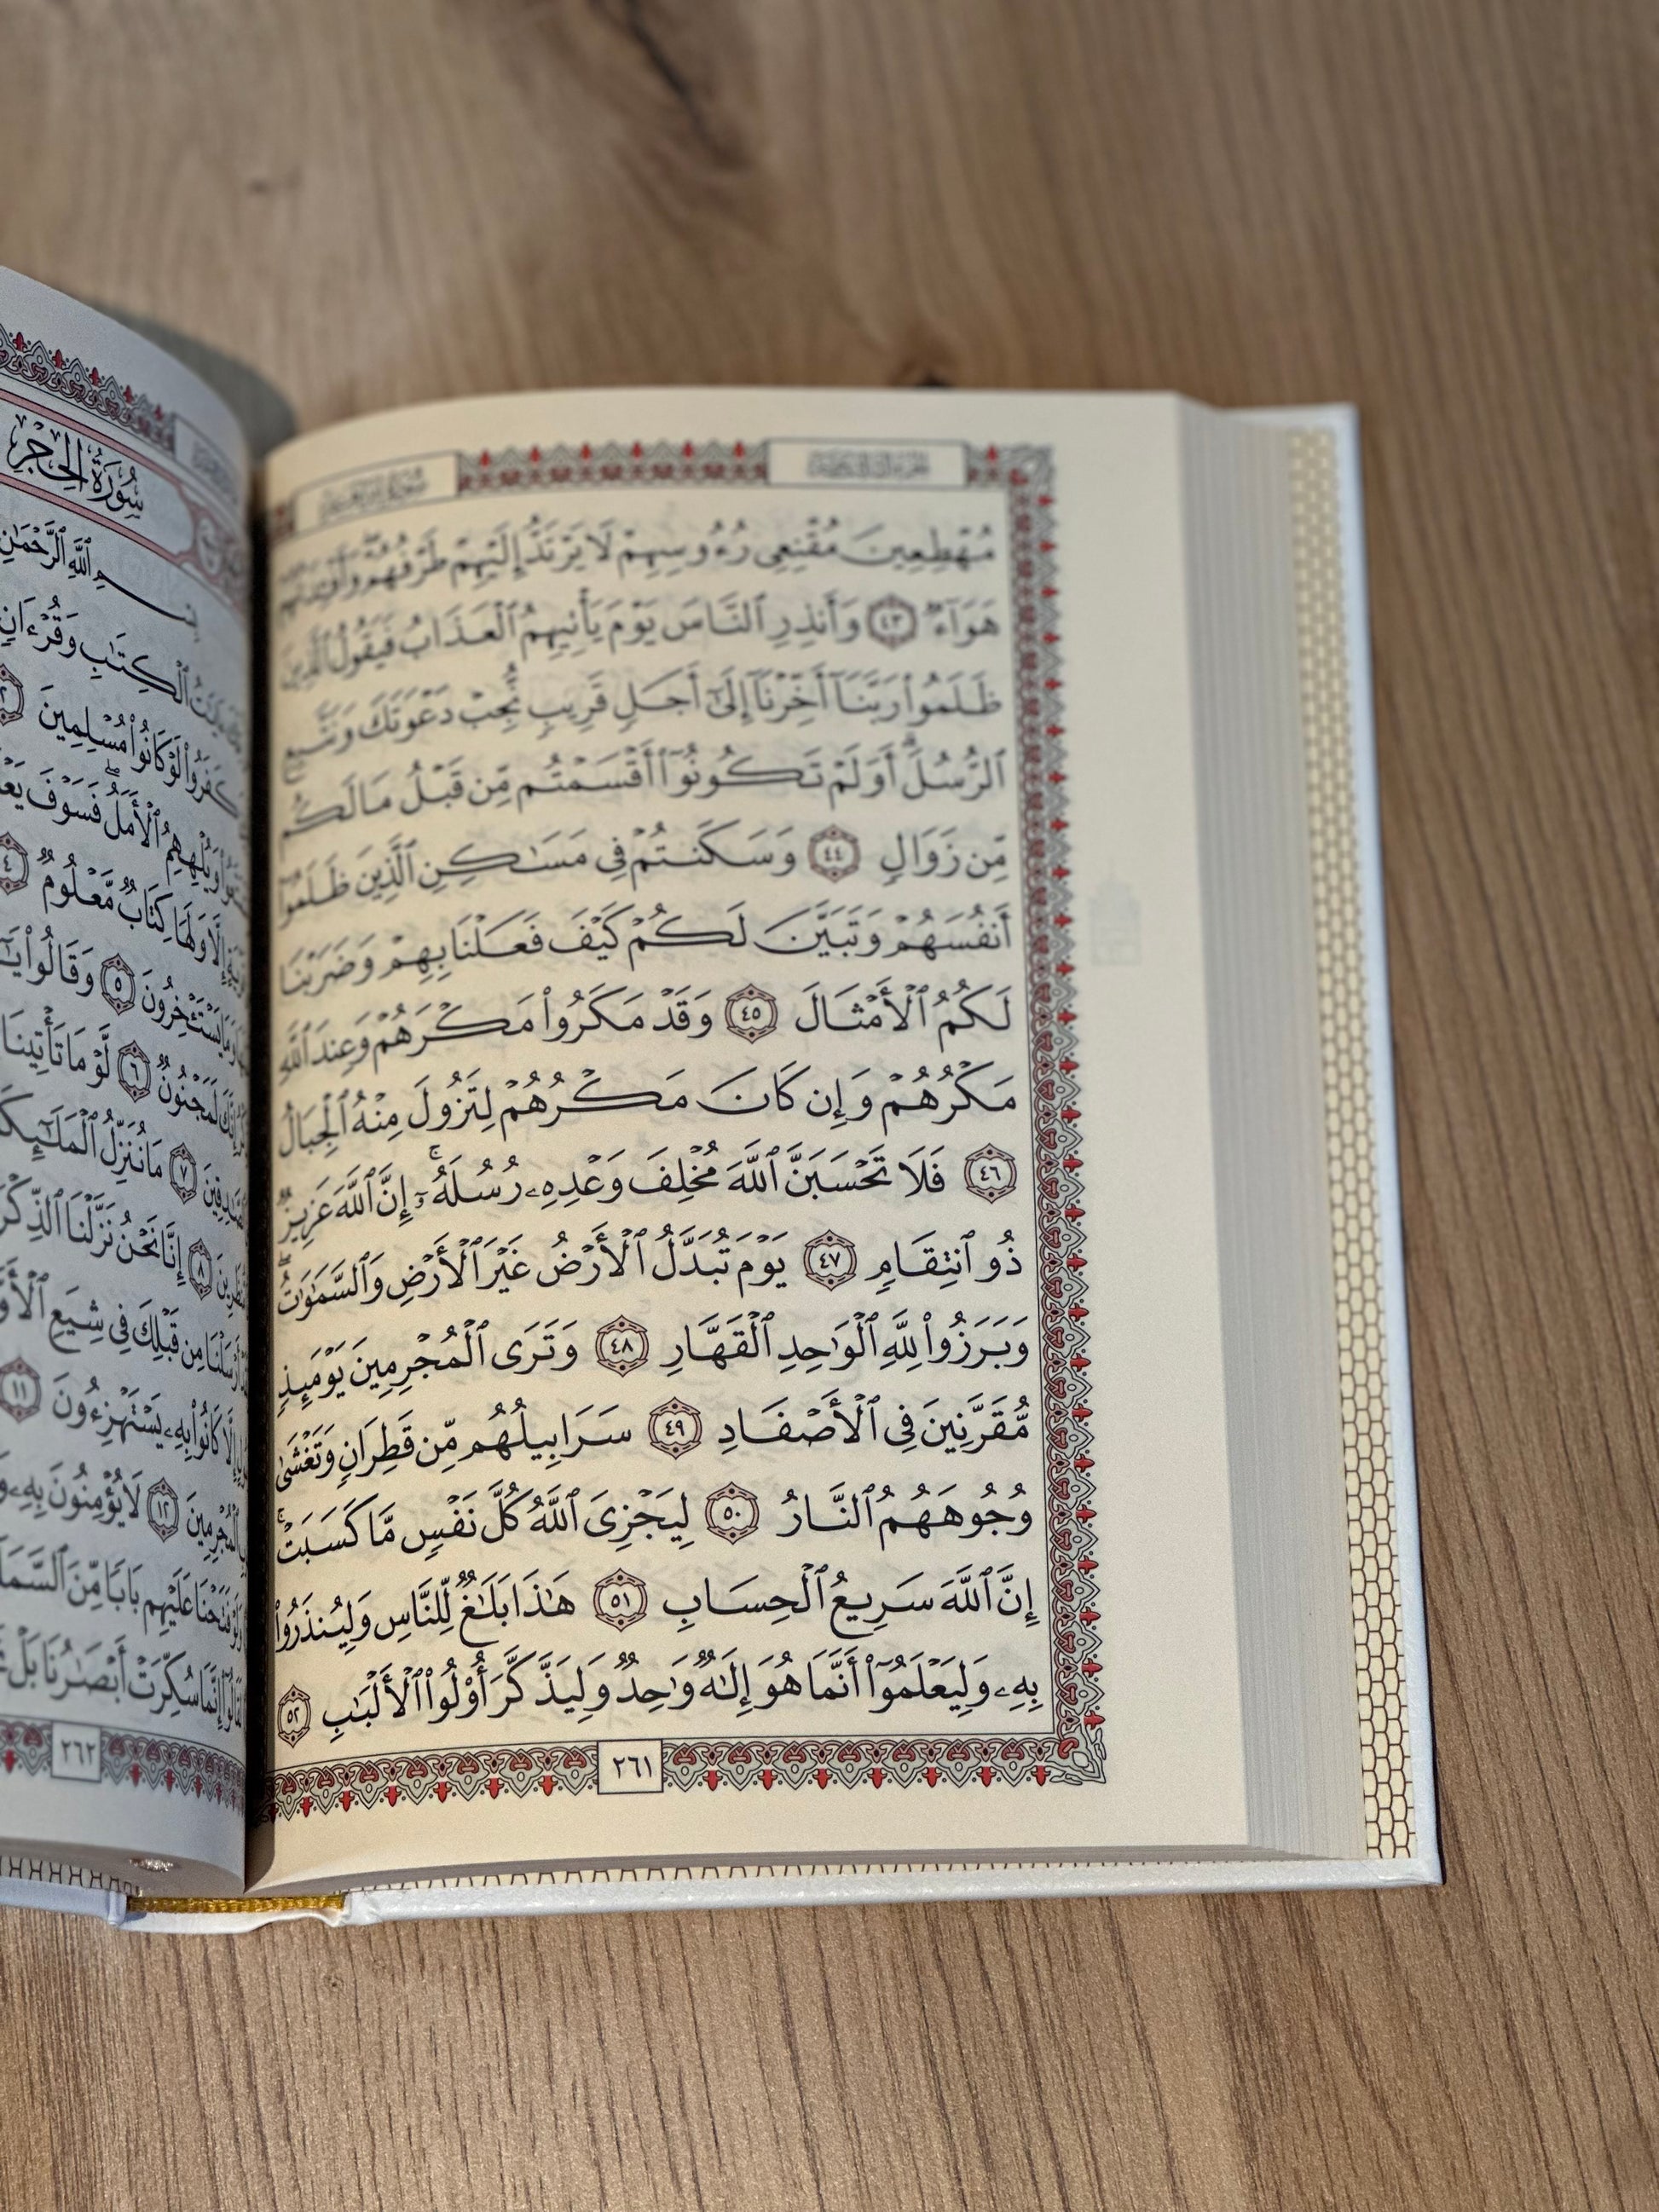 مُهْطِعِينَ مُقْنِعِى رُءُوسِهِمْ لَا يَرْتَدُّ إِلَيْهِمْ طَرْفُهُمْ ۖ وَأَفْـِٔدَتُهُمْ
هَوَآءٌ ۝٤٣ وَأَنذِرِ ٱلنَّاسَ يَوْمَ يَأْتِيهِمُ ٱلْعَذَابُ فَيَقُولُ ٱلَّذِينَ
ظَلَمُوا۟ رَبَّنَآ أَخِّرْنَآ إِلَىٰٓ أَجَلٍ قَرِيبٍ نُّجِبْ دَعْوَتَكَ وَنَتَّبِعِ
ٱلرُّسُلَ ۗ أَوَلَمْ تَكُونُوٓا۟ أَقْسَمْتُم مِّن قَبْلُ مَا لَكُم
مِّن زَوَالٍ ۝٤٤ وَسَكَنتُمْ فِى مَسَـٰكِنِ ٱلَّذِينَ ظَلَمُوٓا۟
أَنفُسَهُمْ وَتَبَيَّنَ لَكُمْ كَيْفَ فَعَلْنَا بِهِمْ وَضَرَبْنَا
لَكُمُ ٱلْأَمْثَالَ ۝٤٥ وَقَدْ مَكَرُوا۟ مَكْرَهُمْ وَعِندَ ٱللَّهِ
مَكْرُهُمْ وَإِن كَانَ مَكْرُهُمْ لِتَزُولَ مِنْهُ ٱلْجِبَالُ
۝٤٦ فَلَا تَحْسَبَنَّ ٱللَّهَ مُخْلِفَ وَعْدِهِۦ رُسُلَهُۥٓ ۗ إِنَّ ٱللَّهَ عَزِيزٌ
ذُو ٱنتِقَامٍ ۝٤٧ يَوْمَ تُبَدَّلُ ٱلْأَرْضُ غَيْرَ ٱلْأَرْضِ وَٱلسَّمَـٰوَٰتُ ۖ
وَبَرَزُوا۟ لِلَّهِ ٱلْوَٰحِدِ ٱلْقَهَّارِ ۝٤٨ وَتَرَى ٱلْمُجْرِمِينَ يَوْمَئِذٍ
مُّقَرَّنِينَ فِى ٱلْأَصْفَادِ ۝٤٩ سَرَابِيلُهُم مِّن قَطِرَانٍ وَتَغْشَىٰ
وُجُوهَهُمُ ٱلنَّارُ ۝٥٠ لِيَجْزِىَ ٱللَّهُ كُلَّ نَفْسٍ مَّا كَسَبَتْ ۚ
إِنَّ ٱللَّهَ سَرِيعُ ٱلْحِسَابِ ۝٥١ هَـٰذَا بَلَـٰغٌ لِّلنَّاسِ وَلِيُنذَرُوا۟
بِهِۦ وَلِيَعْلَمُوٓا۟ أَنَّمَا هُوَ إِلَـٰهٌ وَٰحِدٌ وَلِيَذَّكَّرَ أُو۟لُوا۟ ٱلْأَلْبَـٰبِ ۝٥٢
٢٦١
سُورَةُ الحِجْرِ
ٱللَّهِ ٱلرَّحْمَـٰنِ
ٱلْكِتَـٰبِ وَقُرْءَانٍ
كَفَرُوا۟ لَوْ كَانُوا۟ مُسْلِمِينَ ۝٢
وَيُلْهِهِمُ ٱلْأَمَلُ ۖ فَسَوْفَ
إِلَّا وَلَهَا كِتَابٌ مَّعْلُومٌ ۝٤
وَمَا يَسْتَـْٔخِرُونَ ۝٥ وَقَالُوا۟
إِنَّكَ لَمَجْنُونٌ ۝٦ لَّوْ مَا تَأْتِينَا
۝٧ مَا نُنَزِّلُ
۝٨ إِنَّا نَحْنُ نَزَّلْنَا ٱلذِّكْرَ
أَرْسَلْنَا مِن قَبْلِكَ فِى شِيَعِ
إِلَّا كَانُوا۟ بِهِۦ يَسْتَهْزِءُونَ ۝١١
ٱلْمُجْرِمِينَ ۝١٢ لَا يُؤْمِنُونَ بِهِۦ
فَتَحْنَا عَلَيْهِم بَابًا مِّنَ
إِنَّمَا سُكِّرَتْ أَبْصَـٰرُنَا بَلْ
٢٦٢